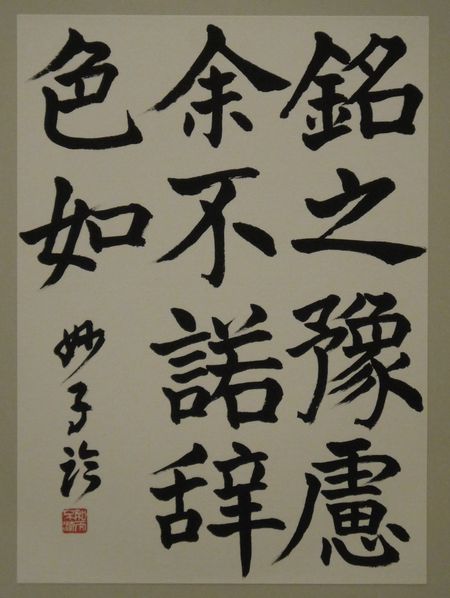 銘之豫慮
余不諾辞
色如
妙子臨